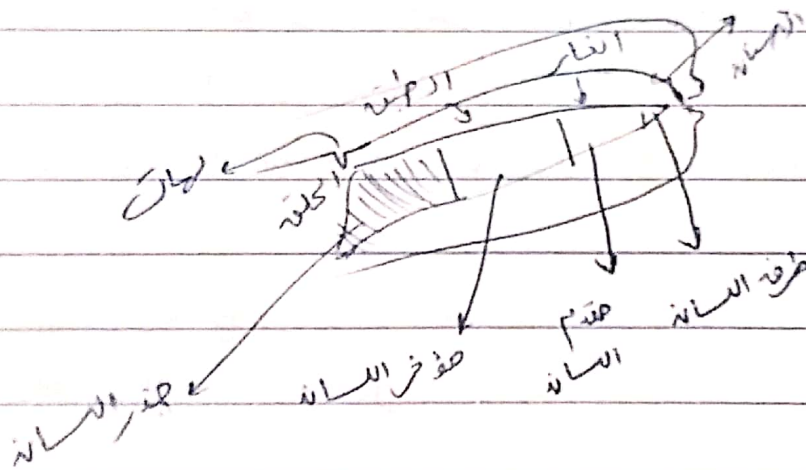 الاسنان
الغار
الطبق
لهات
الحلق
طرف اللسان
مقدم
اللسان
مؤخر اللسان
جذر اللسان